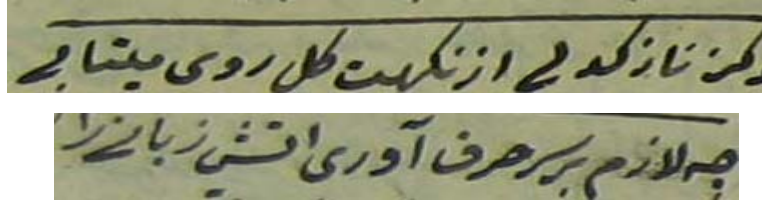 کز نازکدلی از نکهت گل روی میتابی
چه لازم بر سر حرف آوری آتش زبانی را